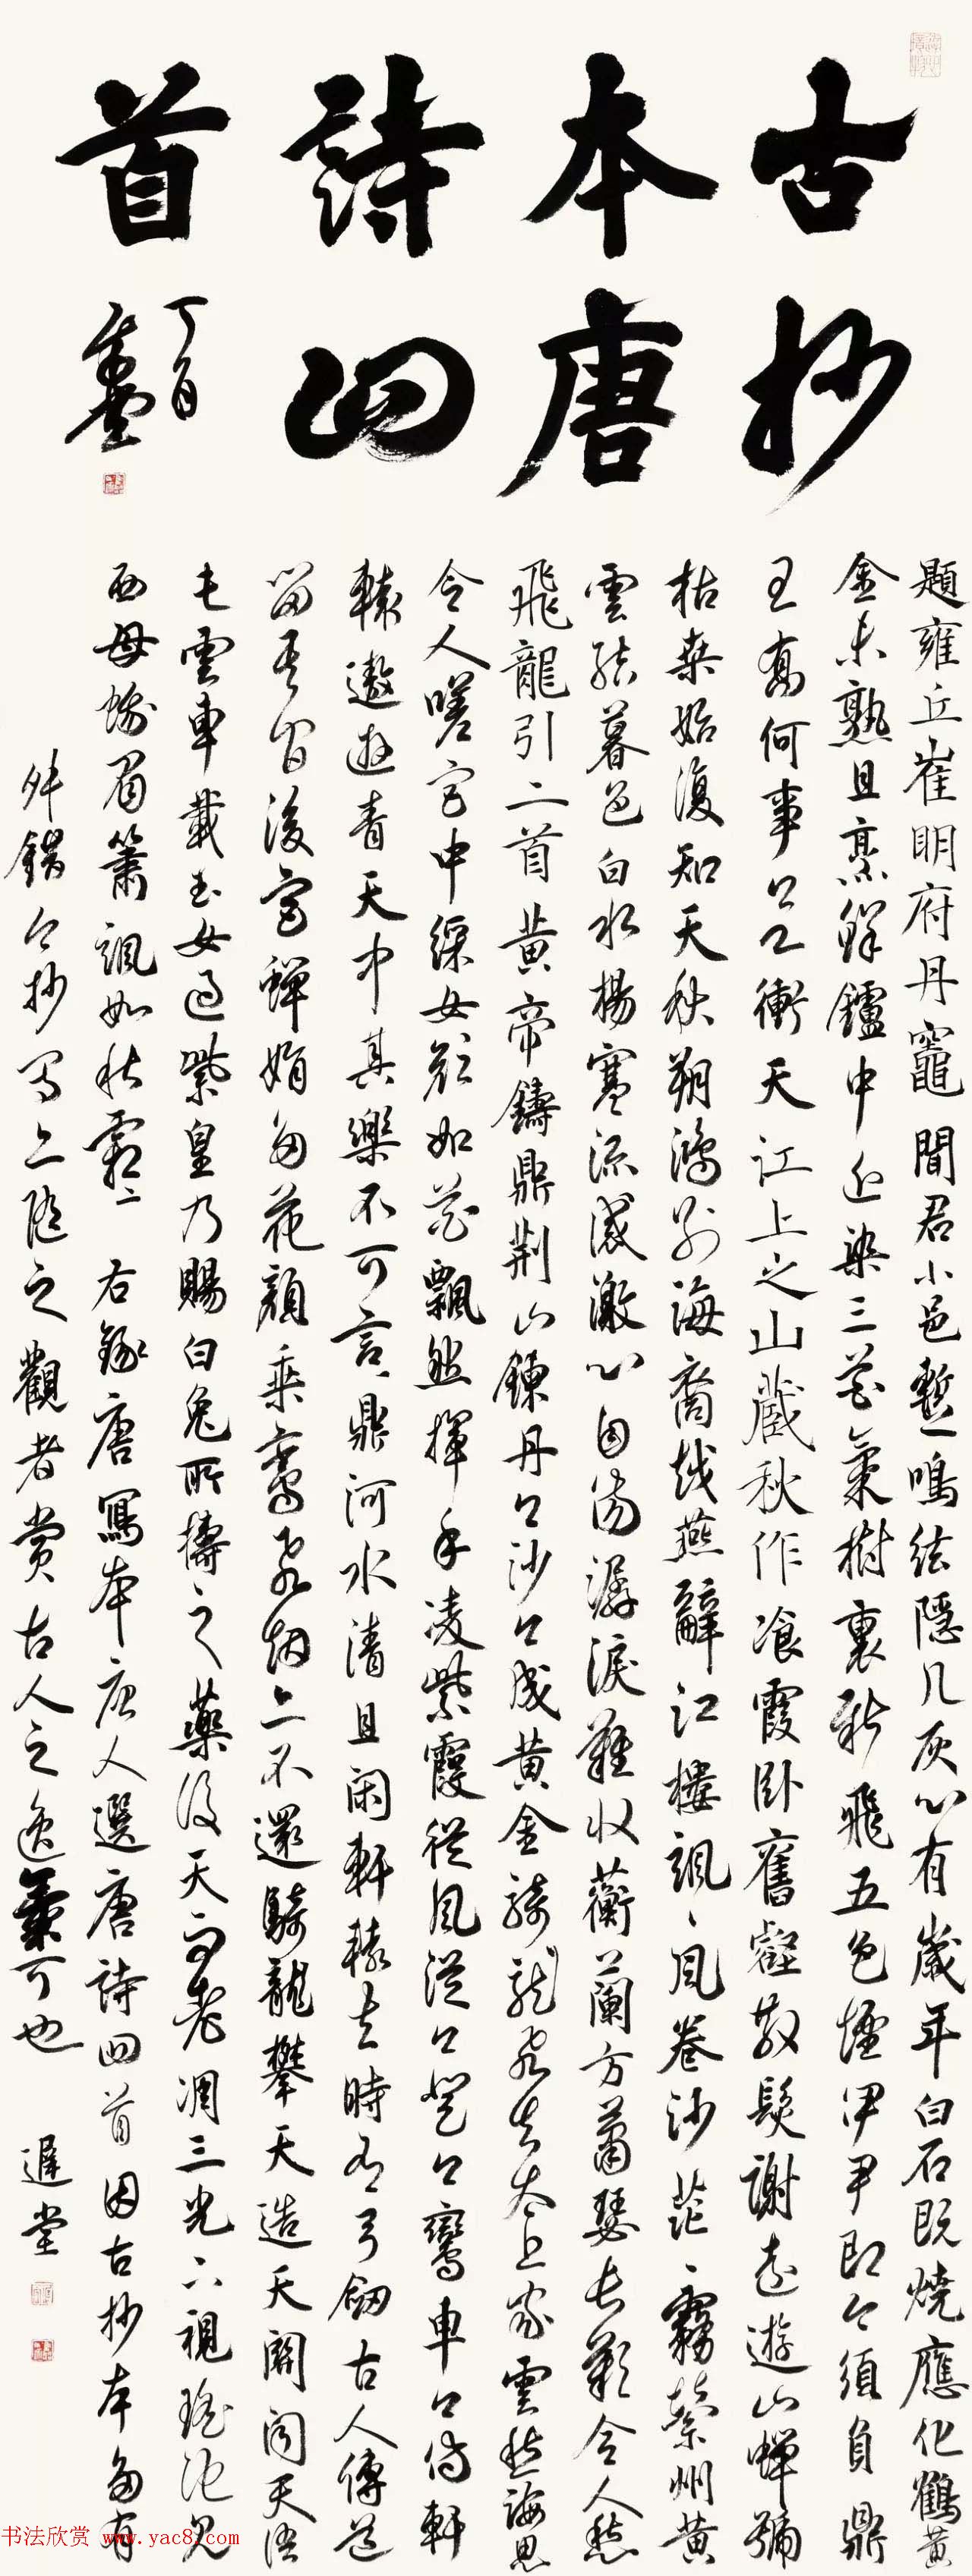 古抄
本唐
詩四
首
丁酉
遲堂
題雍丘崔明府丹竈 聞君小邑暫鳴絃隱几灰心有歲年白石既燒應化鶴黃
金未熟且烹鮮鑪中近染三花氣樹裏新飛五色煙伊尹即今須負鼎
王喬何事衝天 江上之山藏秋作 飡霞卧舊壑散髮謝遠遊山蟬號
枯桑始復知天秋朔鴻別海裔越燕辭江樓颯〻風卷沙茫〻霧縈州黃
雲結暮色白水揚寒流感激心自傷潺湲淚難收蘅蘭方蕭瑟長歎令人愁
飛龍引二首 黃帝鑄鼎荊山鍊丹〻沙〻成黃金騎龍飛去太上家雲愁海思
令人嗟宮中綵女顏如花飄然揮手凌紫霞從風縱〻登〻鸞車〻侍軒
轅遨遊青天中其樂不可言 鼎河水清且閑軒轅去時有弓劒古人傳道
留其間後宮嬋娟多花顏乘鸞飛烟亦不還騎龍攀天造天關聞天語
屯雲車載玉女過紫皇乃賜白兔所擣之藥後天而老凋三光下視瑤池見
西母蛾眉蕭颯如秋霜〻 右錄唐寫本唐人選唐詩四首因古抄本多有
舛錯今抄寫亦隨之觀者賞古人之逸氣可也 遲堂
书法欣赏 www.yac8.com